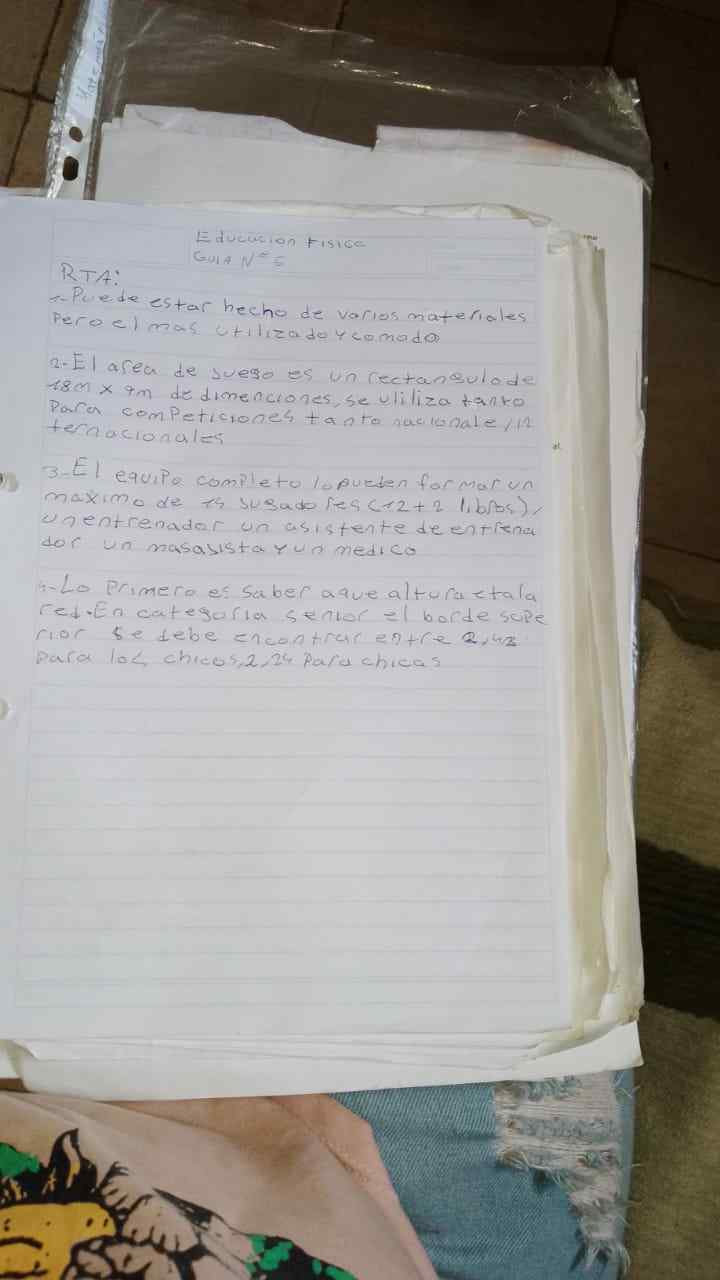 Matematica
Educacion Fisica
GUIA N° 6
RTA:
1-Puede estar hecho de varios materiales
Pero el mas utilizado y comodo
2-El area de juego es un rectangulo de
18m x 9m de dimenciones, se uliliza tanto
Para competiciones tanto nacionale/in
ternacionales
3-El equipo completo lo pueden formar un
maximo de 14 jugadores (12+2 libros),
un entrenador un asistente de entrena
dor un masajista y un medico
4-Lo Primero es saber aque altura etala
red. En categoria senior el borde supe
rior se debe encontrar entre 2,43
para los chicos, 2,24 para chicas